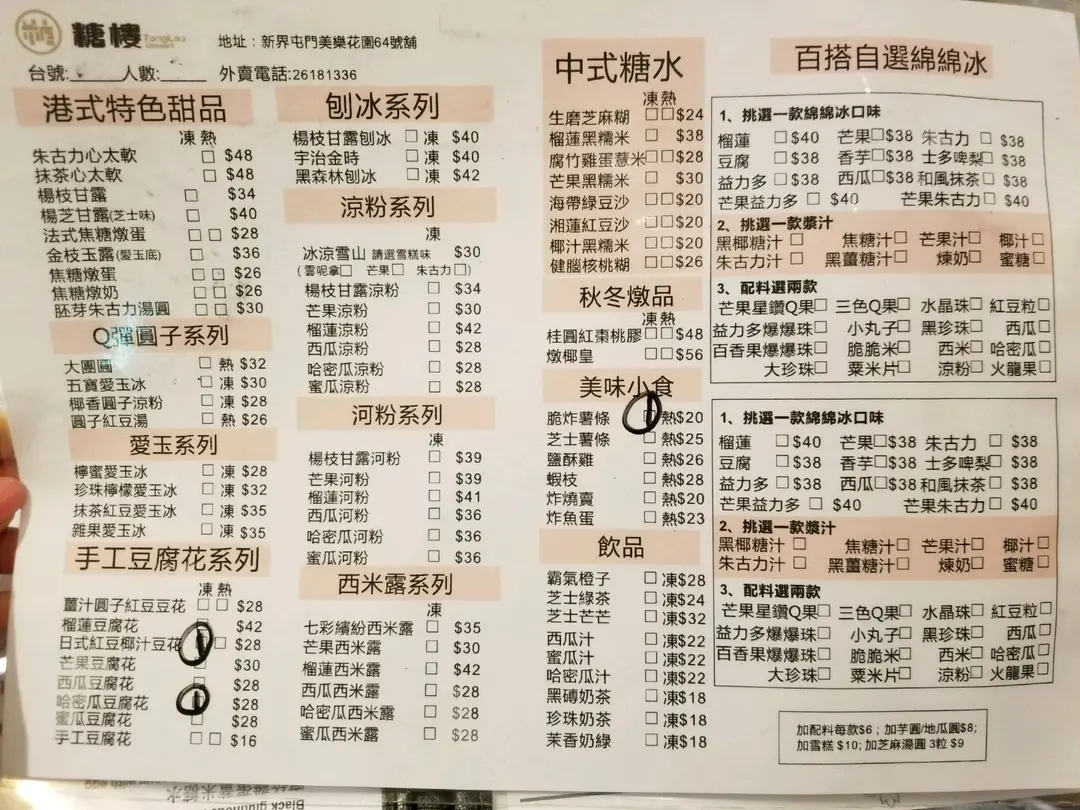 糖樓 TongLau Dessert
地址：新界屯門美樂花園64號舖
台號:_____人數:_____ 外賣電話:26181336
港式特色甜品
凍 熱
朱古力心太軟 □ $48
抹茶心太軟 □ $48
楊枝甘露 □ $34
楊芝甘露(芝士味) □ $40
法式焦糖燉蛋 □ □ $28
金枝玉露(愛玉底) □ $36
焦糖燉蛋 □ □ $26
焦糖燉奶 □ □ $26
胚芽朱古力湯圓 □ □ $30
Q彈圓子系列
大團圓 □ 熱 $32
五寶愛玉冰 □ 凍 $30
椰香圓子涼粉 □ 凍 $28
圓子紅豆湯 □ 熱 $26
愛玉系列
檸蜜愛玉冰 □ 凍 $28
珍珠檸檬愛玉冰 □ 凍 $32
抹茶紅豆愛玉冰 □ 凍 $35
雜果愛玉冰 □ 凍 $35
手工豆腐花系列
凍 熱
薑汁圓子紅豆豆花 □ □ $28
榴蓮豆腐花 $42
日式紅豆椰汁豆花 □ □ $28
芒果豆腐花 □ $30
西瓜豆腐花 □ $28
哈密瓜豆腐花 □ $28
蜜瓜豆腐花 □ $28
手工豆腐花 □ □ $16
刨冰系列
楊枝甘露刨冰 □ 凍 $40
宇治金時 □ 凍 $40
黑森林刨冰 □ 凍 $42
涼粉系列
凍
冰涼雪山 請選雪糕味 $30
(雲呢拿□ 芒果□ 朱古力□)
楊枝甘露涼粉 □ $34
芒果涼粉 □ $30
榴蓮涼粉 □ $42
西瓜涼粉 □ $28
哈密瓜涼粉 □ $28
蜜瓜涼粉 □ $28
河粉系列
凍
楊枝甘露河粉 □ $39
芒果河粉 □ $39
榴蓮河粉 □ $41
西瓜河粉 □ $36
哈密瓜河粉 □ $36
蜜瓜河粉 □ $36
西米露系列
凍
七彩繽紛西米露 □ $35
芒果西米露 □ $30
榴蓮西米露 □ $42
西瓜西米露 □ $28
哈密瓜西米露 □ $28
蜜瓜西米露 □ $28
中式糖水
凍 熱
生磨芝麻糊 □ □ $24
榴蓮黑糯米 □ $38
腐竹雞蛋薏米 □ □ $28
芒果黑糯米 □ $30
海帶綠豆沙 □ □ $20
湘蓮紅豆沙 □ □ $20
椰汁黑糯米 □ □ $20
健腦核桃糊 □ □ $26
秋冬燉品
凍 熱
桂圓紅棗桃膠 □ □ $48
燉椰皇 □ □ $56
美味小食
脆炸薯條 □ 熱$20
芝士薯條 □ 熱$25
鹽酥雞 □ 熱$26
蝦枝 □ 熱$28
炸燒賣 □ 熱$20
炸魚蛋 □ 熱$23
飲品
霸氣橙子 □ 凍$28
芝士綠茶 □ 凍$24
芝士芒芒 □ 凍$32
西瓜汁 □ 凍$22
蜜瓜汁 □ 凍$22
哈密瓜汁 □ 凍$22
黑磚奶茶 □ 凍$18
珍珠奶茶 □ 凍$18
茉香奶綠 □ 凍$18
百搭自選綿綿冰
1、挑選一款綿綿冰口味
榴蓮 □ $40 芒果□ $38 朱古力 □ $38
豆腐 □ $38 香芋□ $38 士多啤梨□ $38
益力多 □ $38 西瓜□ $38 和風抹茶□ $38
芒果益力多 □ $40 芒果朱古力□ $40
2、挑選一款漿汁
黑椰糖汁 □ 焦糖汁□ 芒果汁□ 椰汁□
朱古力汁 □ 黑薑糖汁□ 煉奶□ 蜜糖□
3、配料選兩款
芒果星鑽Q果□ 三色Q果□ 水晶珠□ 紅豆粒□
益力多爆爆珠□ 小丸子□ 黑珍珠□ 西瓜□
百香果爆爆珠□ 脆脆米□ 西米□ 哈密瓜□
大珍珠□ 粟米片□ 涼粉□ 火龍果□
1、挑選一款綿綿冰口味
榴蓮 □ $40 芒果□ $38 朱古力 □ $38
豆腐 □ $38 香芋□ $38 士多啤梨□ $38
益力多 □ $38 西瓜□ $38 和風抹茶□ $38
芒果益力多 □ $40 芒果朱古力□ $40
2、挑選一款漿汁
黑椰糖汁 □ 焦糖汁□ 芒果汁□ 椰汁□
朱古力汁 □ 黑薑糖汁□ 煉奶□ 蜜糖□
3、配料選兩款
芒果星鑽Q果□ 三色Q果□ 水晶珠□ 紅豆粒□
益力多爆爆珠□ 小丸子□ 黑珍珠□ 西瓜□
百香果爆爆珠□ 脆脆米□ 西米□ 哈密瓜□
大珍珠□ 粟米片□ 涼粉□ 火龍果□
加配料每款$6；加芋圓/地瓜圓$8;
加雪糕 $10; 加芝麻湯圓 3粒 $9